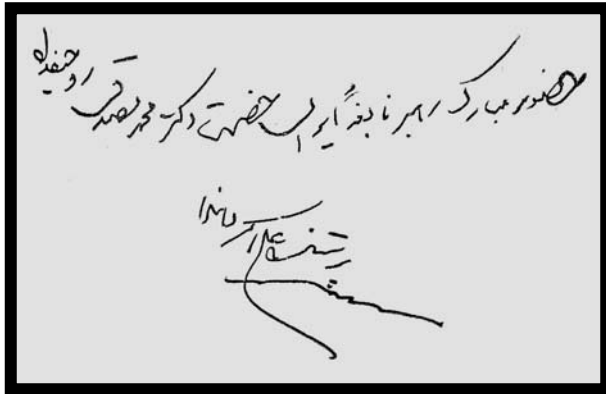 حضور مبارک رهبر نابغهٔ ایران حضرت دکتر محمد مصدق روحیفداه
علی اکبر دهخدا